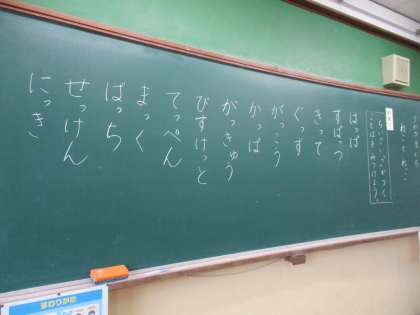 ねこ と ねっこ
はっぱ
すぱっつ
きって
ぐっす
がっこう
かっぱ
がっきゅう
びすけっと
てっぺん
まっく
ばっち
せっけん
にっき
すわりかた